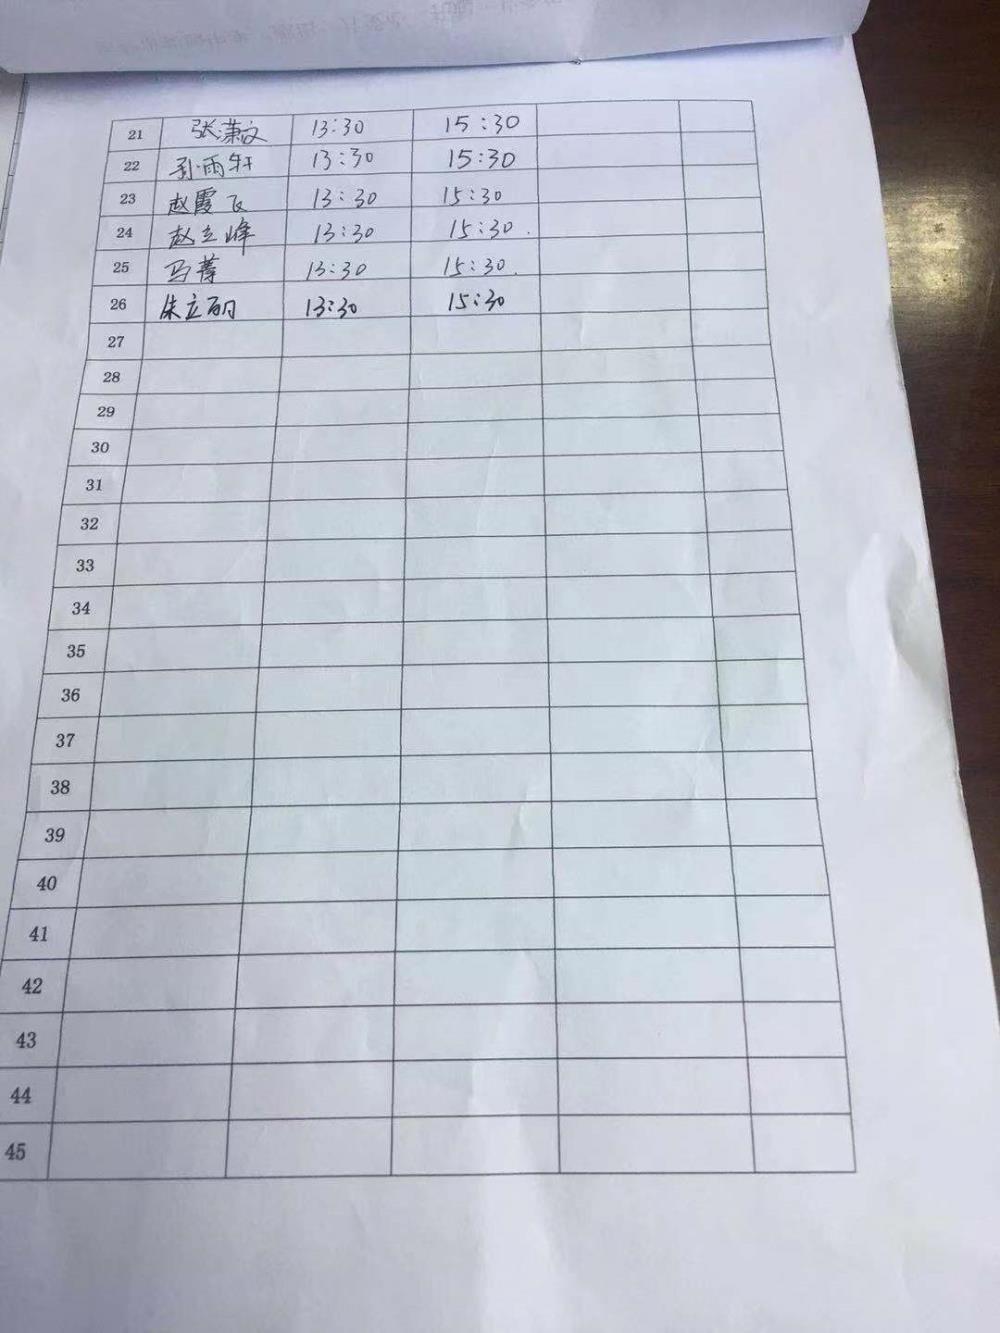 21 张潇文 13:30 15:30
22 孙雨轩 13:30 15:30
23 赵霞飞 13:30 15:30
24 赵立峰 13:30 15:30.
25 马菁 13:30 15:30.
26 朱立丽 13:30 15:30
27
28
29
30
31
32
33
34
35
36
37
38
39
40
41
42
43
44
45